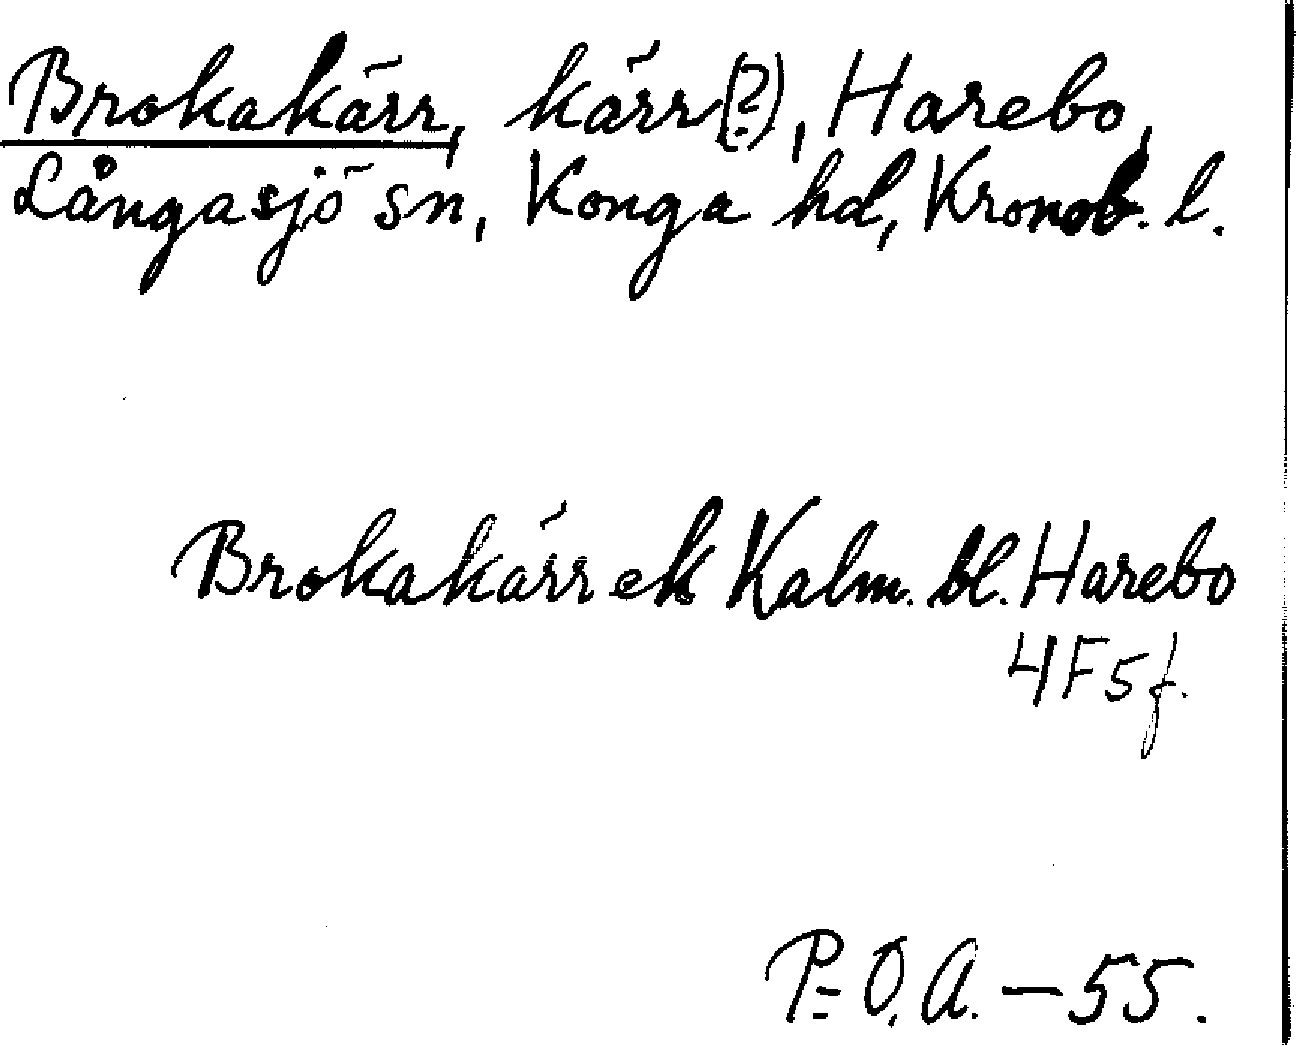 Brokakärr, kärr(?), Harebo,
Långasjö sn, Konga hd, Kronob. l.
Brokakärr ek Kalm. bl. Harebo
4F5f.
P-O.A. – 55.